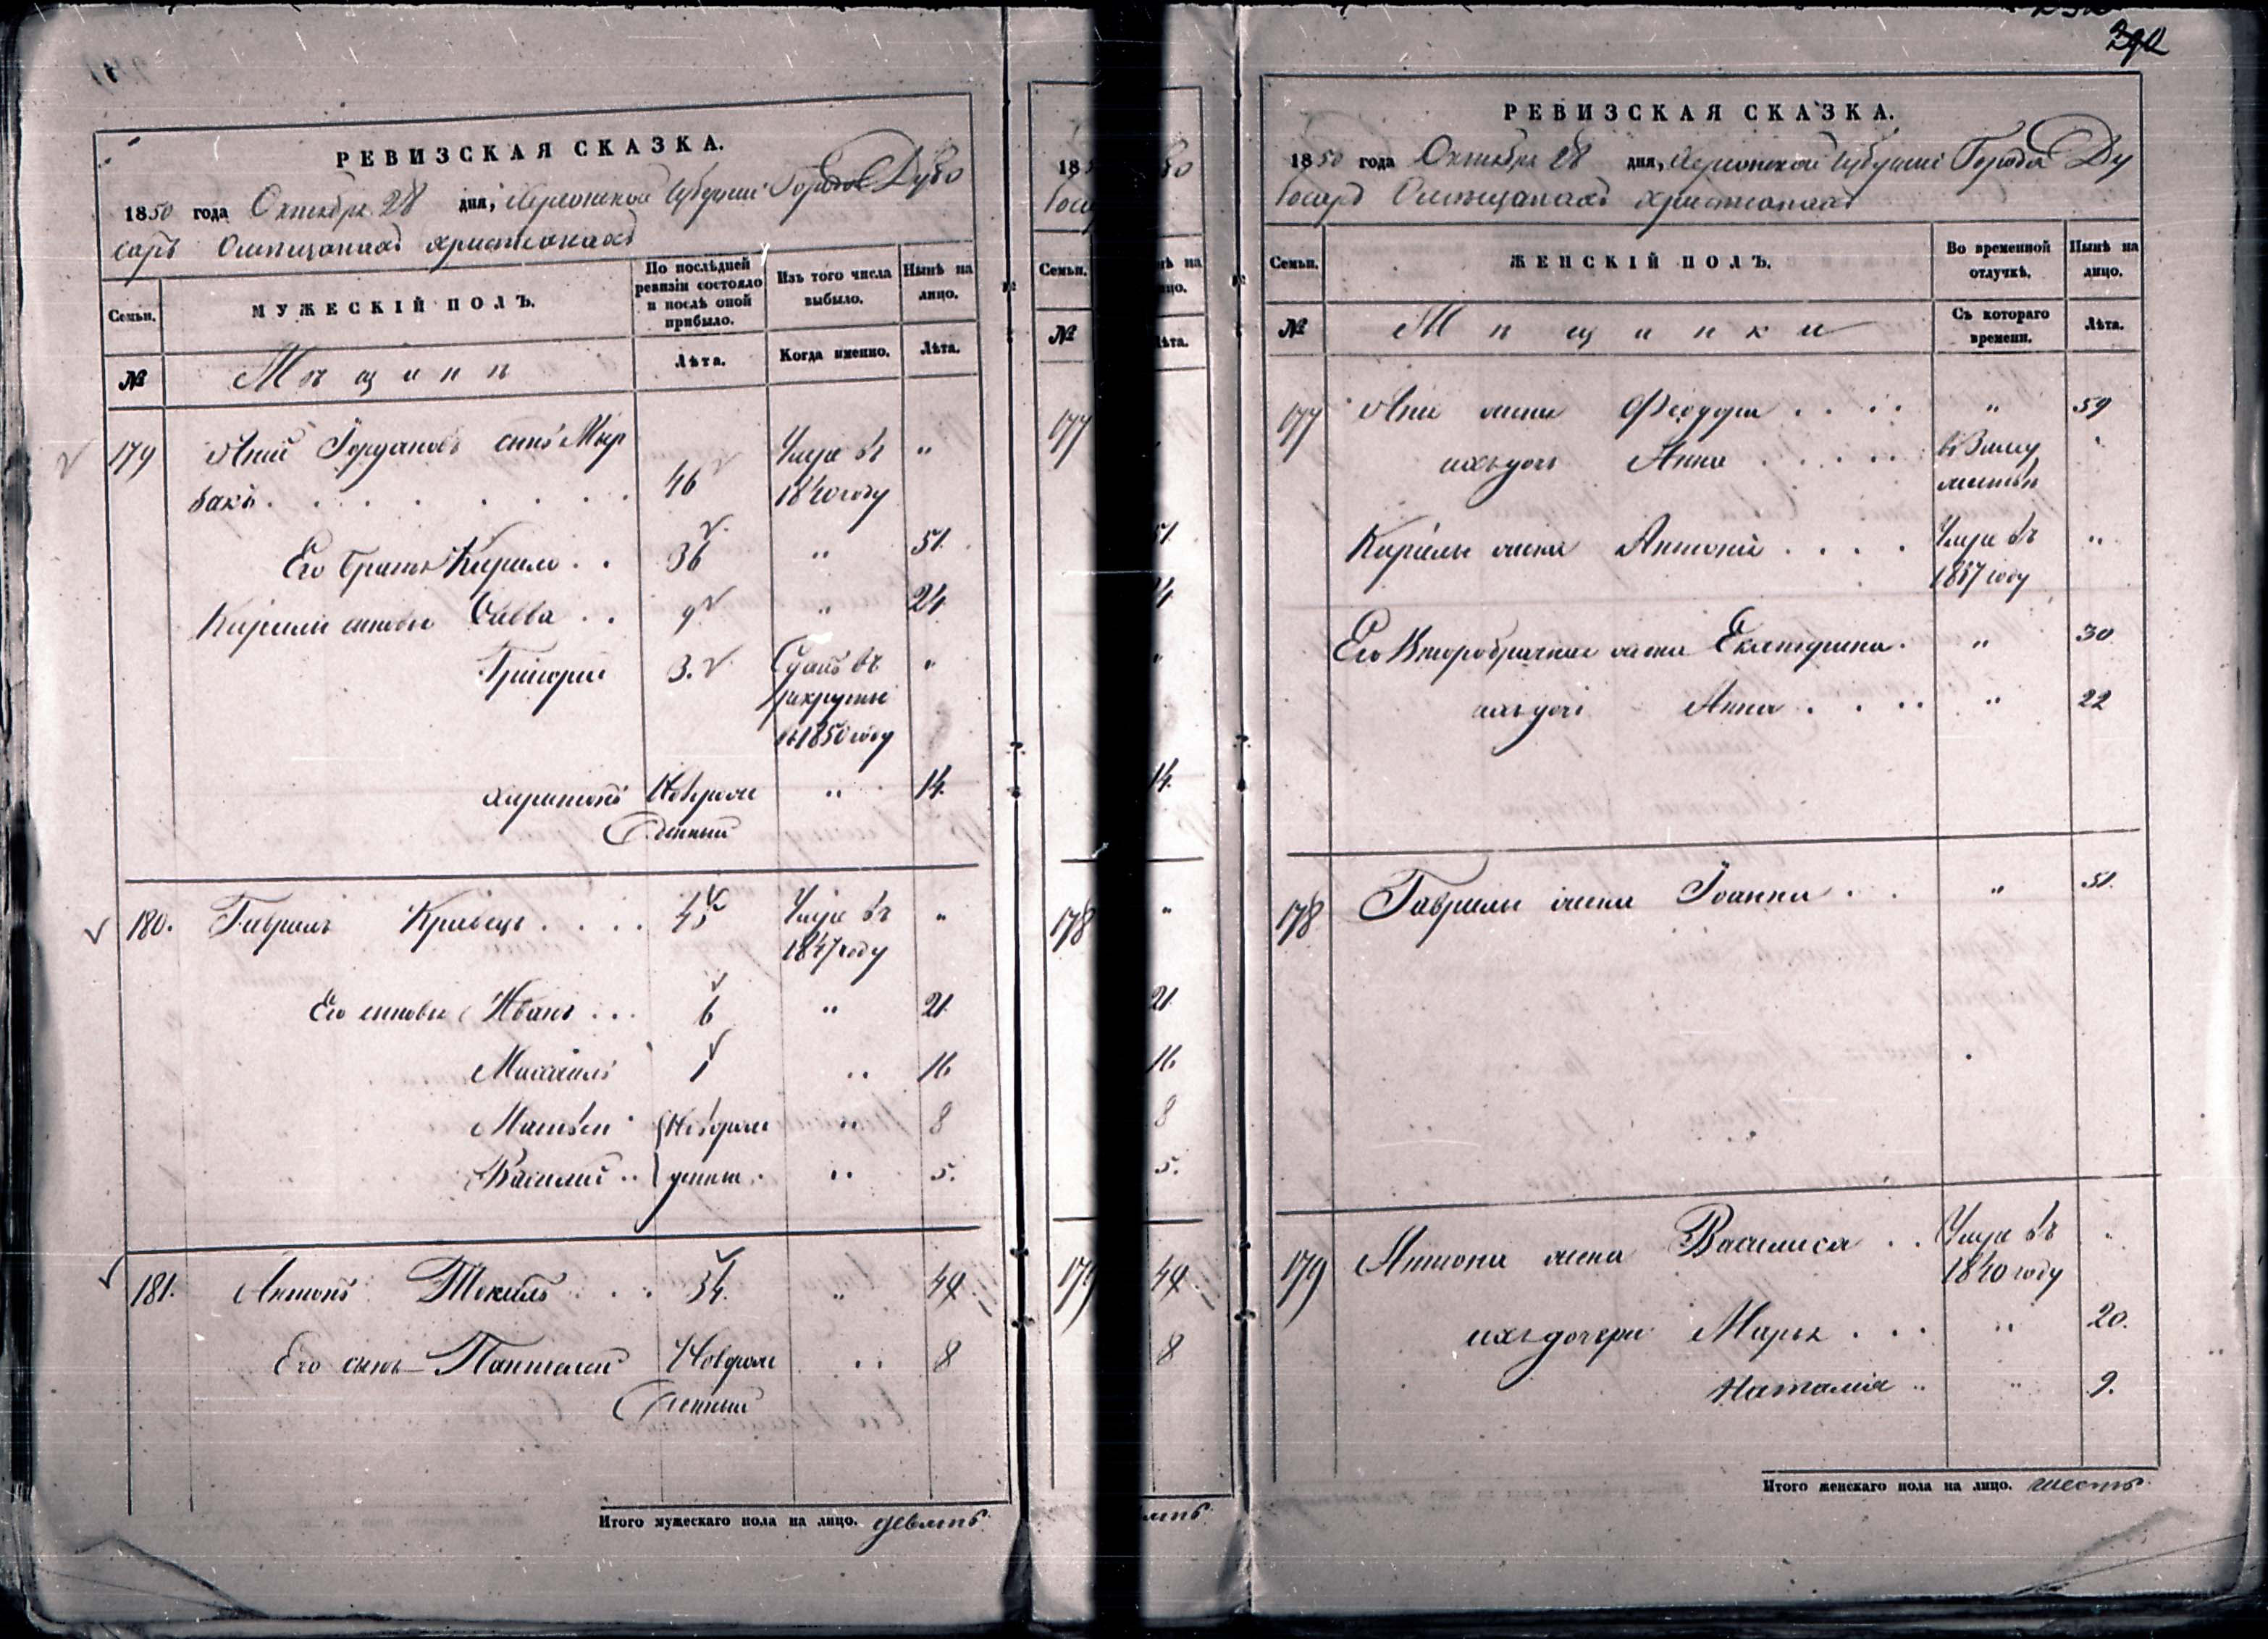 290
РЕВИЗСКАЯ СКАЗКА.
1850 года Октября 28 дня, Херсонской Губерніи Города Дубо
саръ О мѣщанахъ христіанахъ
Семьи. МУЖЕСКІЙ ПОЛЪ. По послѣдней ревизіи состояло и послѣ оной прибыло. Изъ того числа выбыло. Нынѣ на лицо.
№ Мѣщане Лѣта. Когда именно. Лѣта.
179 Іордановъ сынъ Мыр Умре въ "
бакъ 46 1840 году
Его братъ Кирило 36 " 51.
Кирилы сыновья Савва 9 " 24
Григорій 3. Сданъ въ "
рекруты
въ 1850 году
Харитонъ Новорож " 14.
денный
180. Гаврилъ Кривецъ 45 Умре въ "
1847 году
Его сыновья Иванъ 6 " 21.
Михаилъ 1 " 16
Матвей Новорож " 8
Василий денные " 5.
181. Антонъ 34. " 49
Его сынъ Пантелей Новорож " 8
денный
Итого мужескаго пола на лицо. девять
1850
Семьи.
№
177
51.
24
14.
178
21.
16
8
5.
179 49
8
РЕВИЗСКАЯ СКАЗКА.
1850 года Октября 28 дня, Херсонской Губерніи Города Ду
босаръ О мѣщанахъ христіанахъ
Семьи. ЖЕНСКІЙ ПОЛЪ. Во временной отлучкѣ. Нынѣ на лицо.
№ Мѣщанки Съ котораго времени. Лѣта.
177 жена Феодора " 59
ихъ дочь Анна въ Заму
жествѣ
Кирилы жена Умре въ "
1837 году
Его Второбрачная жена Екатерина. " 30
ихъ дочь Анна " 22
178 Гаврилы жена Іоанна " 51.
179 Антона жена Василиса Умре въ "
1840 году
ихъ дочери Марья " 20.
Наталія " 9.
Итого женскаго пола на лицо. шесть